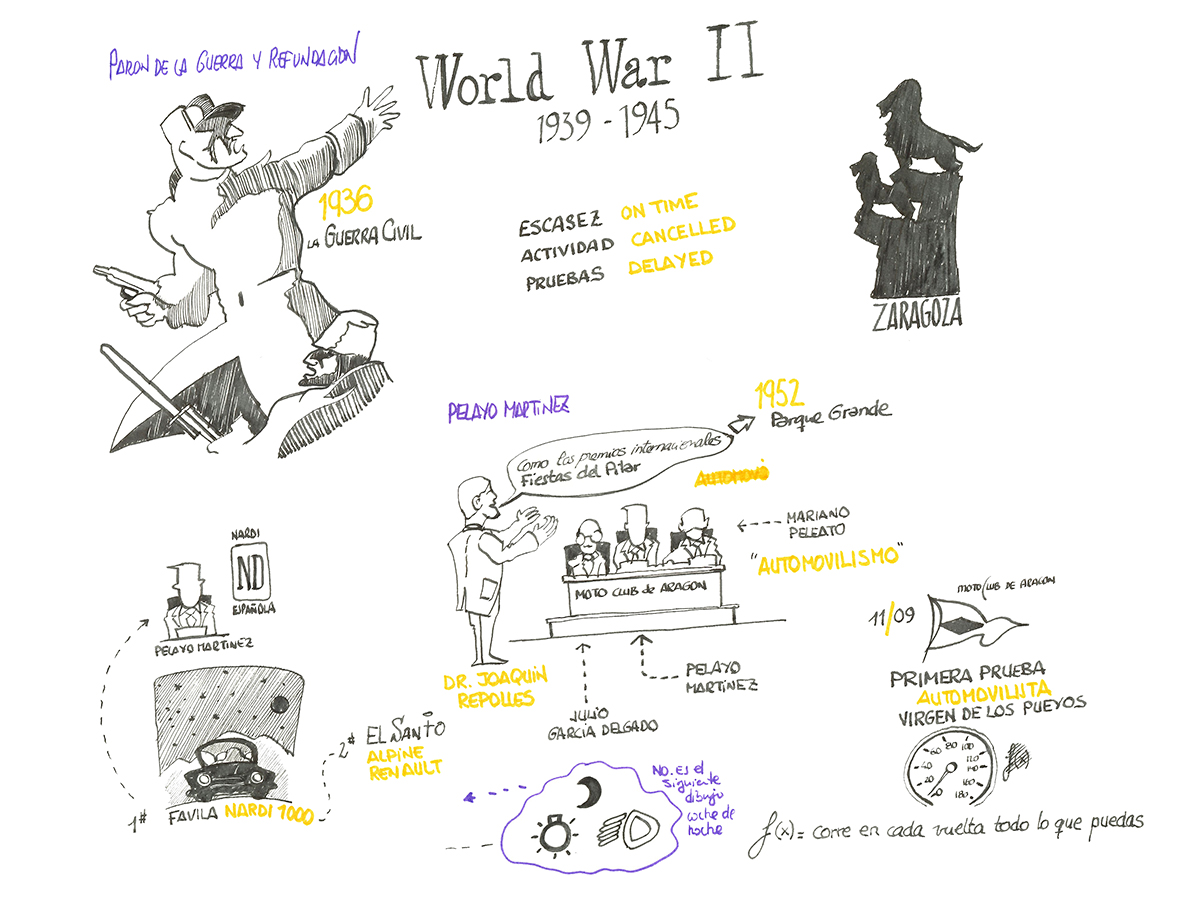 PARON DE LA GUERRA Y REFUNDACION
World War II
1939 - 1945
1936
LA GUERRA CIVIL
ESCASEZ ON TIME
ACTIVIDAD CANCELLED
PRUEBAS DELAYED
ZARAGOZA
PELAYO MARTINEZ
1952
Parque Grande
Como los premios internacionales
Fiestas del Pilar
AUTOMOVI
MARIANO
PELEATO
"AUTOMOVILISMO"
MOTO CLUB de ARAGON
NARDI
ND
ESPAÑOLA
PELAYO MARTINEZ
DR. JOAQUIN
REPOLLES
JULIO
GARCIA DELGADO
PELAYO
MARTINEZ
11/09
MOTO CLUB DE ARAGON
PRIMERA PRUEBA
AUTOMOVILIITA
VIRGEN DE LOS PUEYOS
0 20 40 60 80 100 120 140 160 180
1# FAVILA NARDI 1000
2# EL SANTO
ALPINE
RENAULT
NO. ES el
siguiente
dibujo
coche de
noche
f(x)= corre en cada vuelta todo lo que puedas